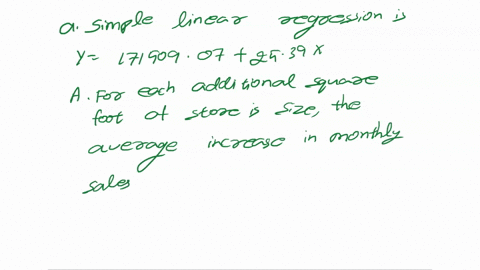 a. simple linear regression is
Y= 171509.07 + 25.39 x
A. For each additional square
foot of store is size, the
average increase in monthly
sales